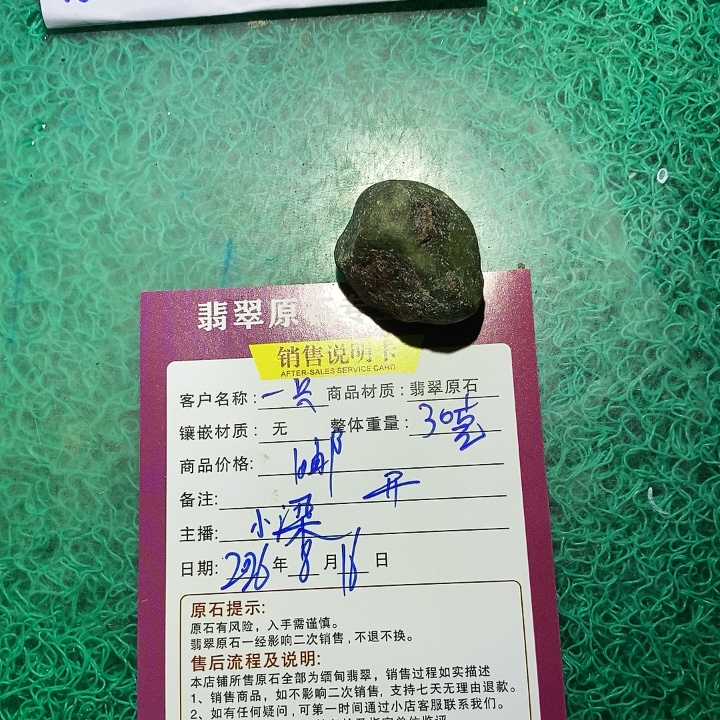 翡翠原石
销售说明卡
AFTER-SALES SERVICE CARD
客户名称: 一只 商品材质: 翡翠原石
镶嵌材质: 无 整体重量: 30克
商品价格: 邮
备注: 开
主播: 小深
日期: 2026年8月16日
原石提示:
原石有风险,入手需谨慎。
翡翠原石一经影响二次销售,不退不换。
售后流程及说明:
本店铺所售原石全部为缅甸翡翠,销售过程如实描述
1、销售商品,如不影响二次销售,支持七天无理由退款。
2、如有任何疑问,可第一时间通过小店客服联系我们。